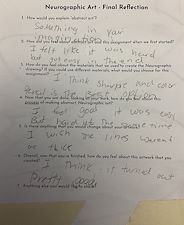 Neurographic Art - Final Reflection
1. How would you explain "abstract art"?
Something in your
imagination
2. How did you feel about this assignment when we first started?
I felt like it was heard
but got easy in the end
3. How do you feel about the materials that we used to create the Neurographic
drawing? If you could use different materials, what would you choose for this
assignment?
I think sharpie and color
pencil is the best option
of looking at your work, how do you feel about this
process of making abstract Neurographic art?
I feel good it was easy
But hard at the same time
5. Is there anything that you would change about your
I wish me lines werent
as thick
6. Overall, now that you are finished, how do you feel about this artwork that you
created?
I think it turned out
Pretty good
7. Anything else you would like to share?